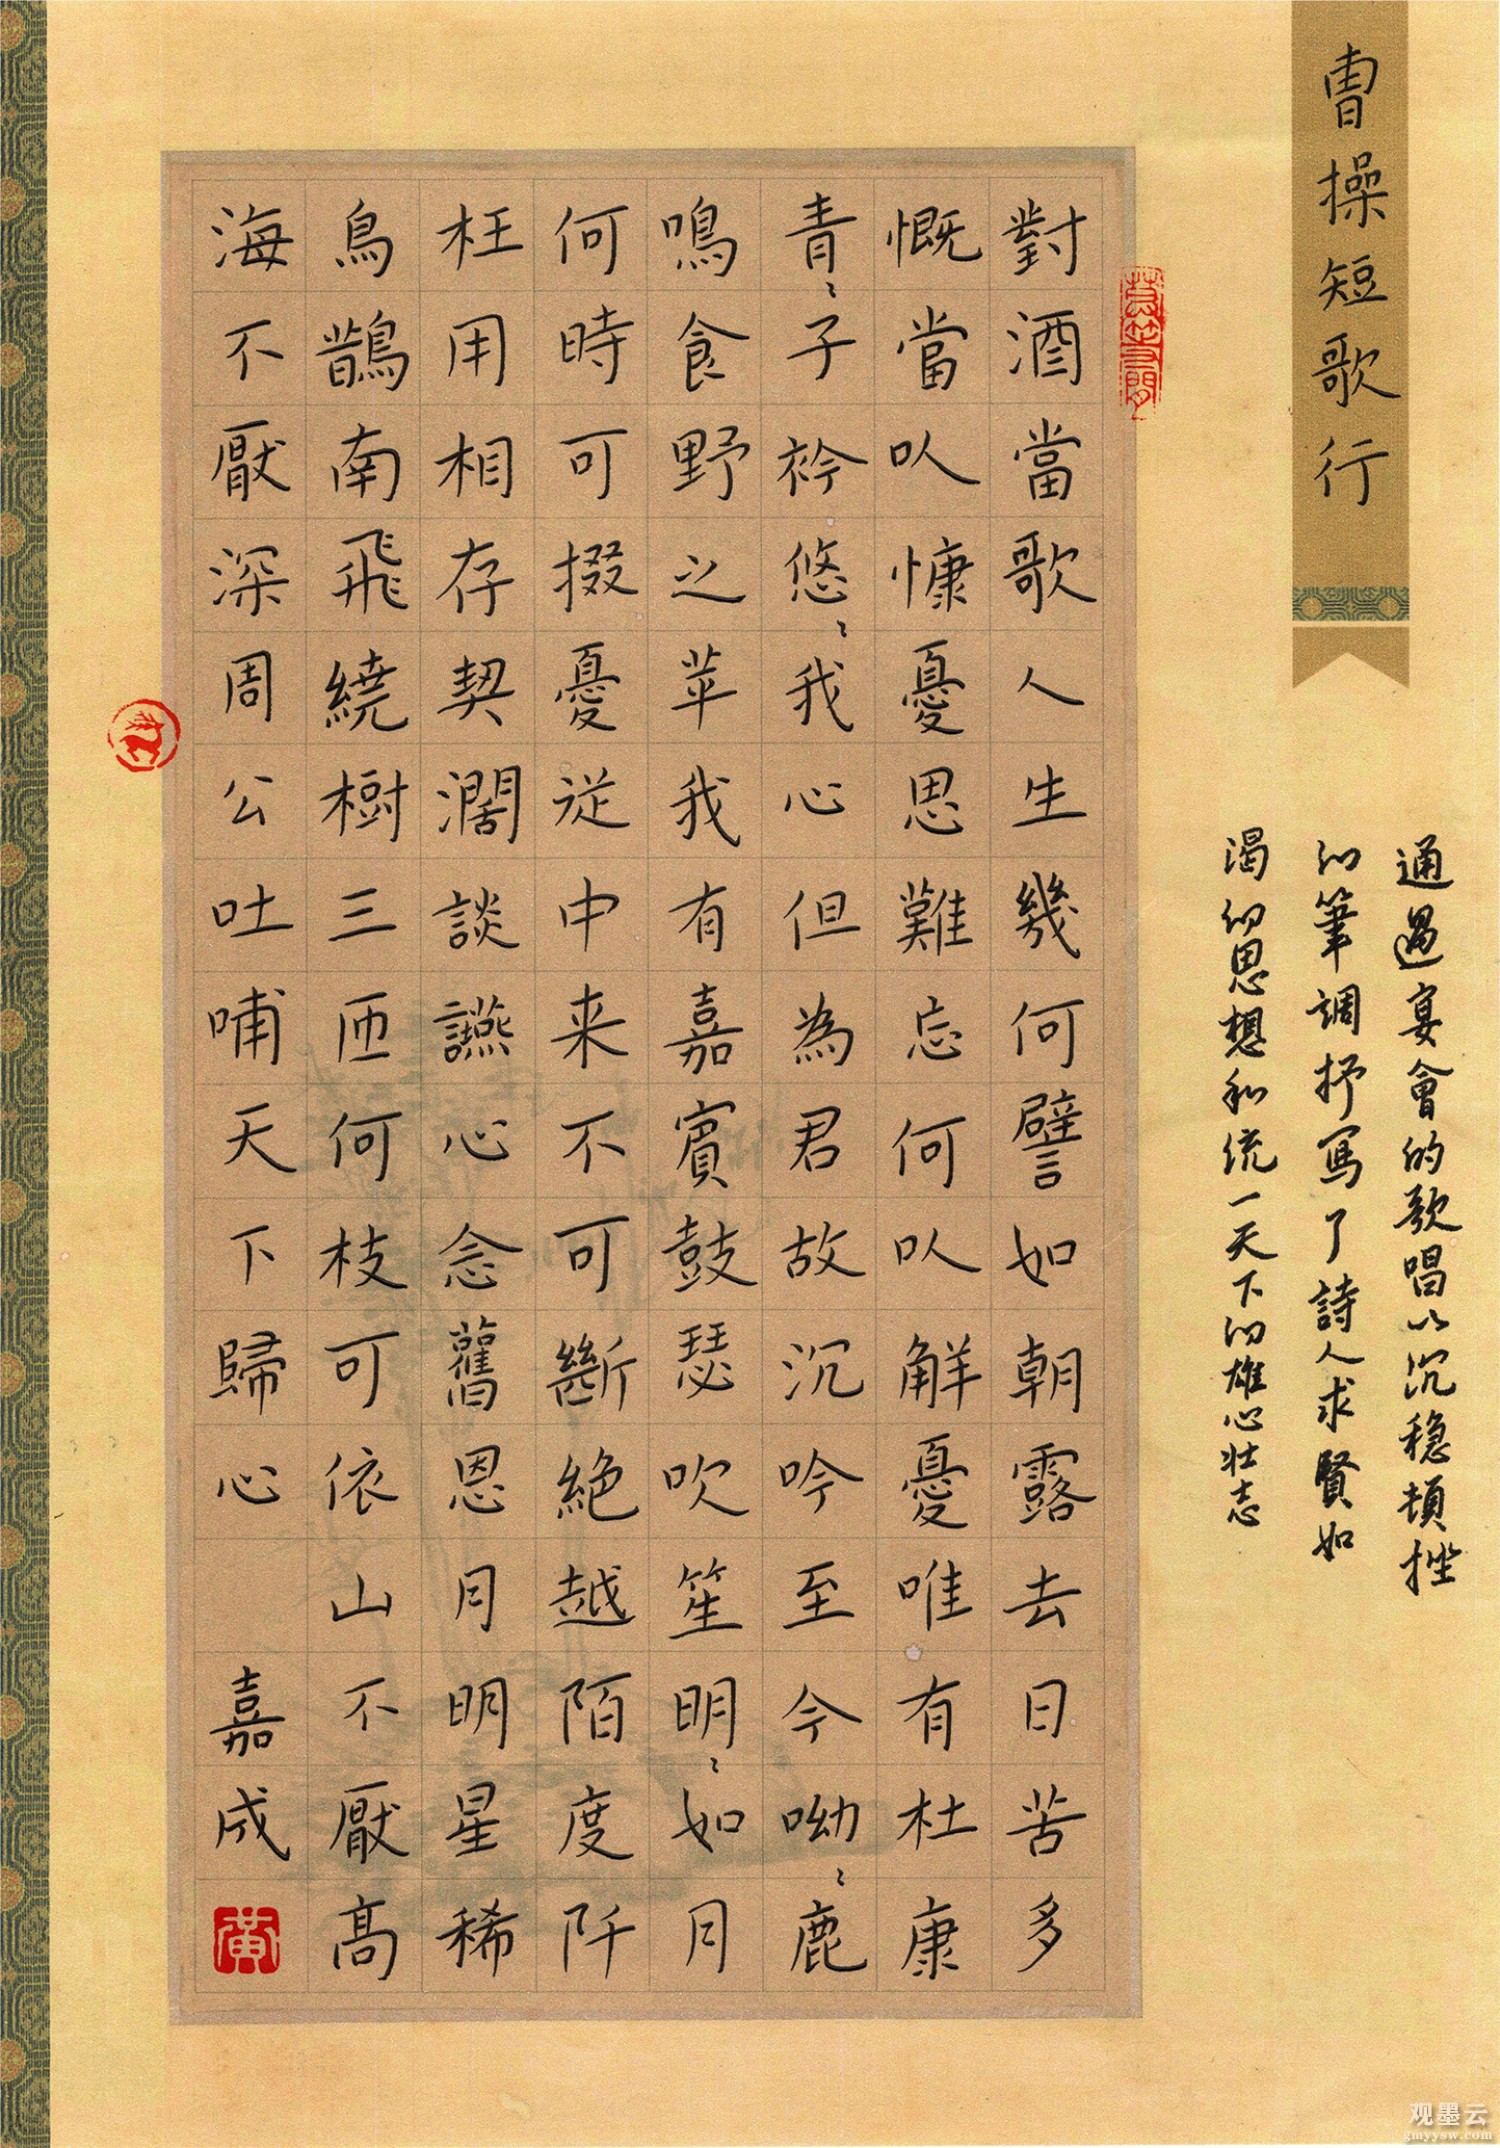 曹操短歌行
通過宴會的歌唱以沉稳頓挫
的筆調抒寫了詩人求賢如
渴的思想和统一天下的雄心壮志
對酒當歌人生幾何譬如朝露去日苦多
慨當以慷憂思難忘何以解憂唯有杜康
青〻子衿悠〻我心但為君故沉吟至今呦〻鹿
鳴食野之苹我有嘉賓鼓瑟吹笙明〻如月
何時可掇憂従中来不可斷絶越陌度阡
枉用相存契濶談讌心念舊恩月明星稀
鳥鵲南飛繞樹三匝何枝可依山不厭高
海不厭深周公吐哺天下歸心 嘉成
黄
观墨云
gmyysw.com